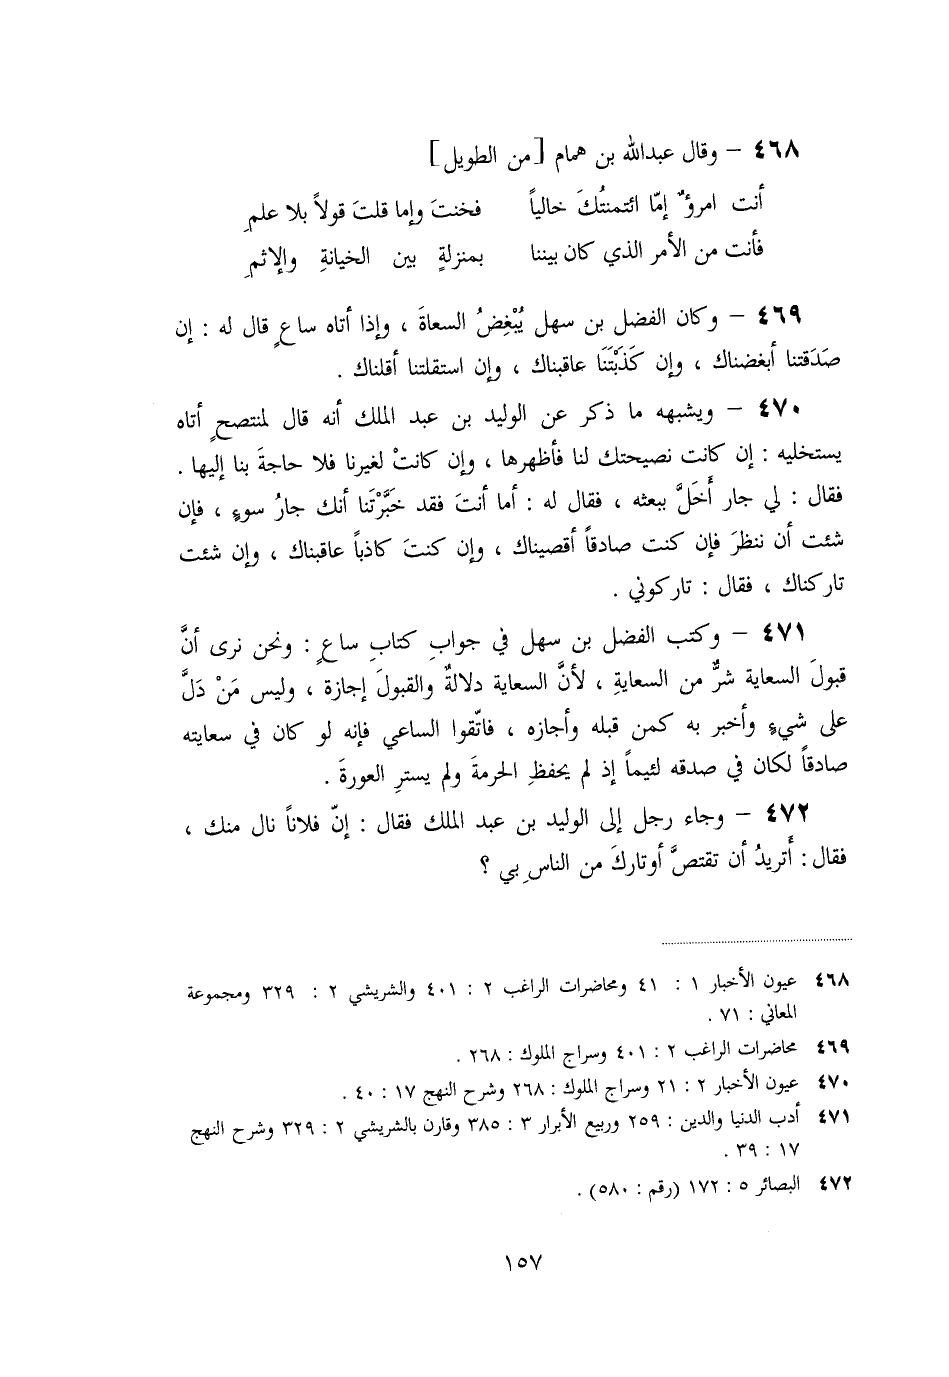 ٤٦٨ – وقال عبدالله بن همام [من الطويل]
أنت امرؤٌ إمّا ائتمنتُكَ خالياً فخنتَ وإما قلتَ قولاً بلا علمِ
فأنت من الأمر الذي كان بيننا بمنزلةٍ بين الخيانةِ والإثمِ
٤٦٩ – وكان الفضل بن سهل يُبْغِضُ السعاةَ ، وإذا أتاه ساعٍ قال له : إن
صَدَقتنا أبغضناك ، وإن كَذَبْتَنَا عاقبناك ، وإن استقلتنا أقلناك .
٤٧٠ – ويشبهه ما ذكر عن الوليد بن عبد الملك أنه قال لمنتصحٍ أتاه
يستخليه : إن كانت نصيحتك لنا فأظهرها ، وإن كانتْ لغيرنا فلا حاجةَ بنا إليها .
فقال : لي جار أَخَلَّ ببعثه ، فقال له : أما أنتَ فقد خَبَّرْتَنا أنك جارُ سوءٍ ، فإن
شئت أن ننظرَ فإن كنت صادقاً أقصيناك ، وإن كنتَ كاذباً عاقبناك ، وإن شئت
تاركناك ، فقال : تاركوني .
٤٧١ – وكتب الفضل بن سهل في جوابِ كتابِ ساعٍ : ونحن نرى أنَّ
قبولَ السعاية شرٌّ من السعايةِ ، لأنَّ السعاية دلالةٌ والقبولَ إجازة ، وليس مَنْ دَلَّ
على شيءٍ وأخبر به كمن قبله وأجازه ، فاتّقوا الساعي فإنه لو كان في سعايته
صادقاً لكان في صدقه لئيماً إذ لم يحفظِ الحرمةَ ولم يسترِ العورةَ .
٤٧٢ – وجاء رجل إلى الوليد بن عبد الملك فقال : إنّ فلاناً نال منك ،
فقال : أَتريدُ أن تقتصَّ أوتاركَ من الناسِ بي ؟
٤٦٨ عيون الأخبار ١ : ٤١ ومحاضرات الراغب ٢ : ٤٠١ والشريشي ٢ : ٣٢٩ ومجموعة
المعاني : ٧١ .
٤٦٩ محاضرات الراغب ٢ : ٤٠١ وسراج الملوك : ٢٦٨ .
٤٧٠ عيون الأخبار ٢ : ٢١ وسراج الملوك : ٢٦٨ وشرح النهج ١٧ : ٤٠ .
٤٧١ أدب الدنيا والدين : ٢٥٩ وربيع الأبرار ٣ : ٣٨٥ وقارن بالشريشي ٢ : ٣٢٩ وشرح النهج
١٧ : ٣٩ .
٤٧٢ البصائر ٥ : ١٧٢ (رقم : ٥٨٠) .
١٥٧